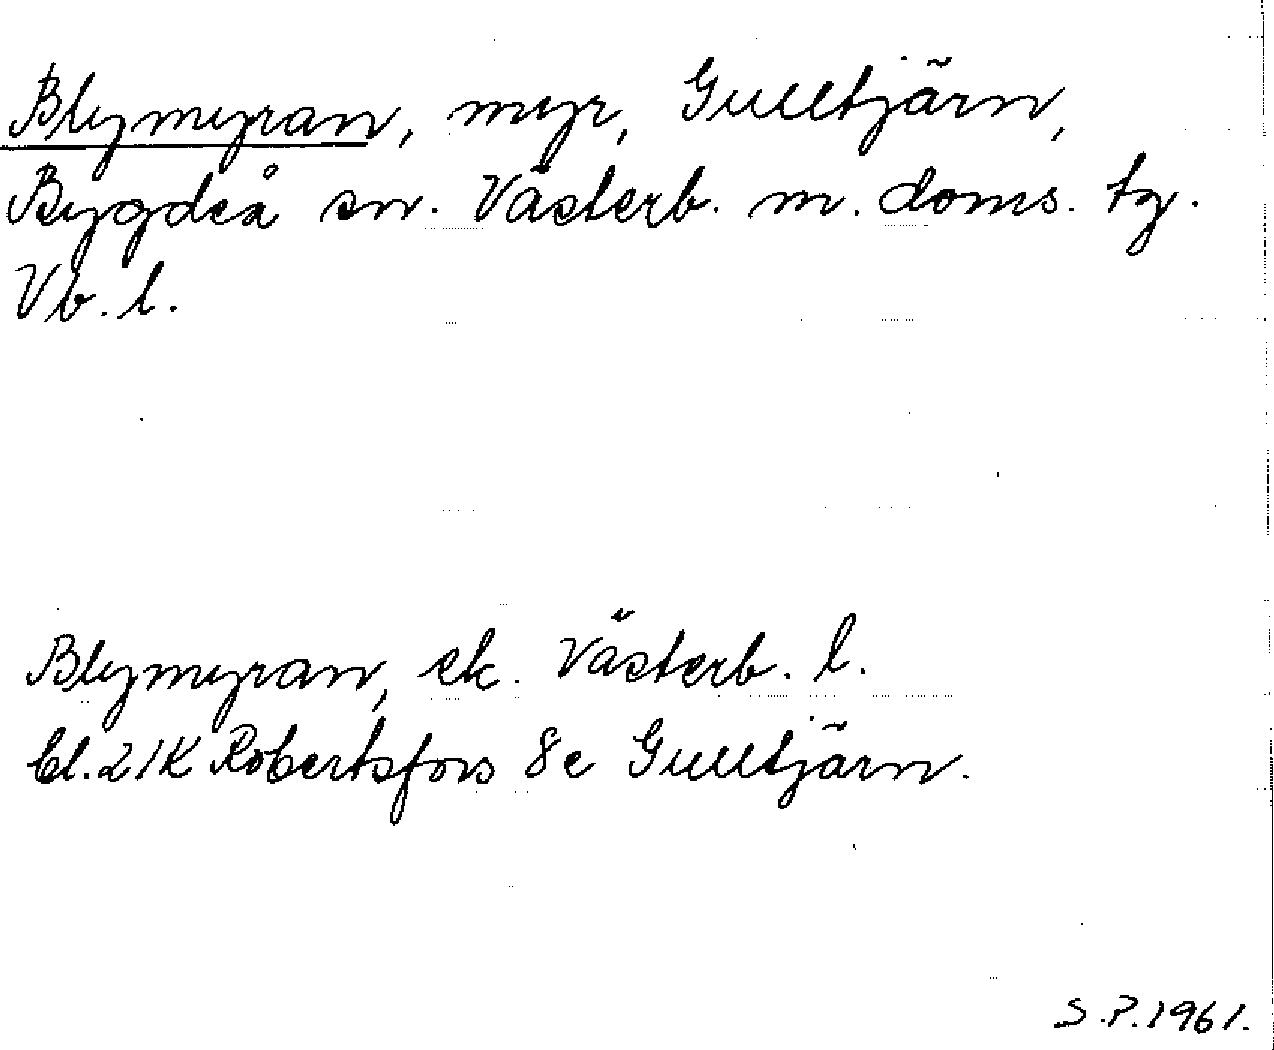 Blymyran, myr, Gulltjärn,
Bygdeå sn. Västerb. m. doms. tg.
Vb. l.
Blymyran, ek. Västerb. l.
bl. 21K Robertsfors 8e Gulltjärn.
S.P. 1961.